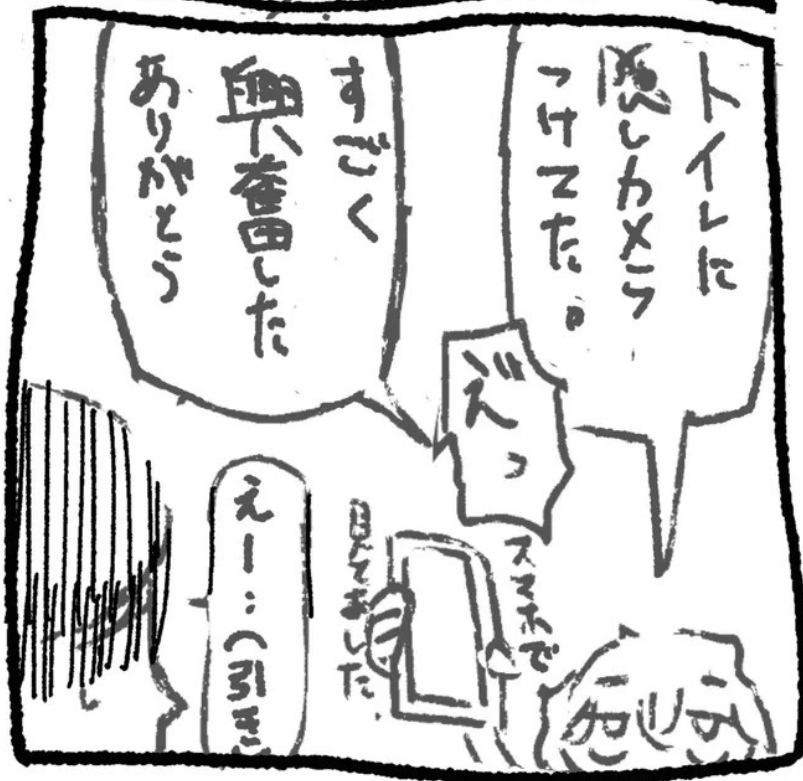 トイレに
隠しカメラ
つけてた。
え゛っ
すごく
興奮した
ありがとう
スマホで
見てました
えー…(引き